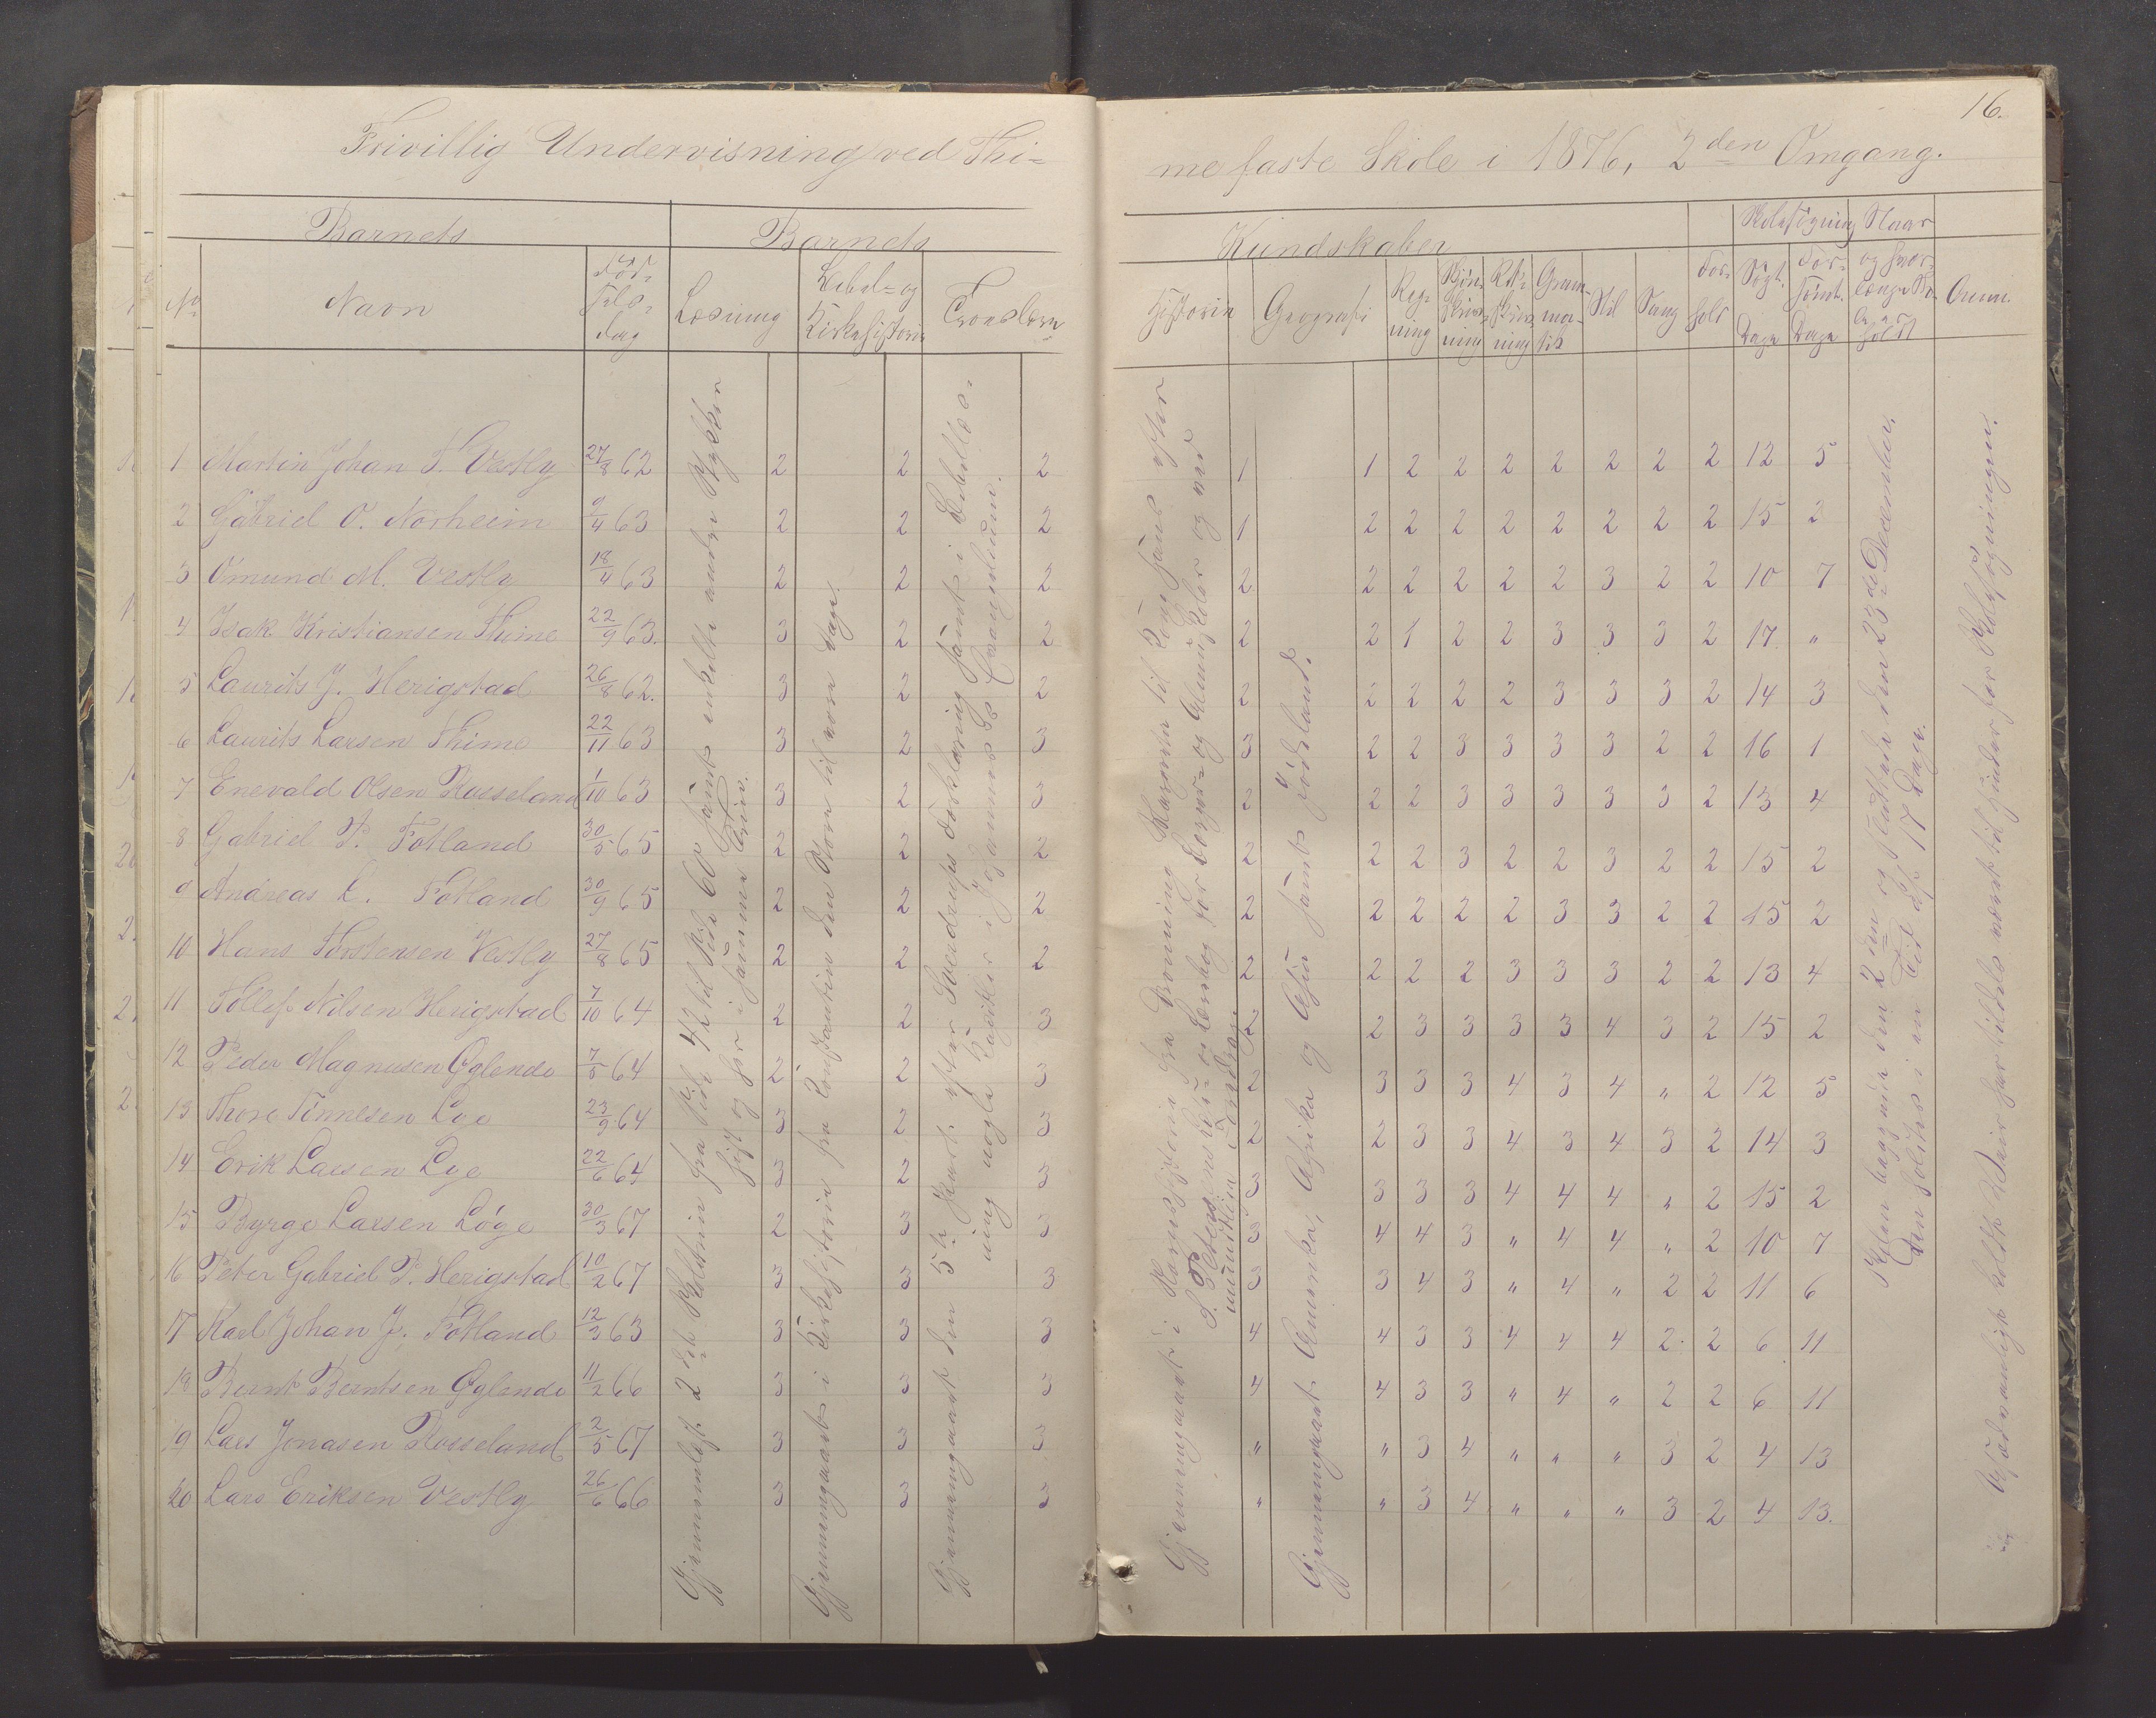 16.
Frivillig Undervisning ved Thi=
me faste Skole i 1876, 2den Omgang.
Barnets
Barnets
Kundskaber
Skolesøgning
Naar
No
Navn
Fød=
sels=
dag
Læsning
Bibel= og
Kirkehistorie
Troeslære
Historie
Geografi
Reg=
ning
Skjøn=
skriv=
ning
Ret=
skriv=
ning
Gram=
ma=
tik
Stil
Sang
For=
hold
Søgt.
Dage
For=
sømt.
Dage
og hvor=
længe
holdt
Anm.
1 Martin Johan T. Vestly 27/8 62 2 2 2 1 1 2 2 2 2 2 2 2 12 5
2 Gabriel O. Norheim 9/4 63 2 2 2 1 2 2 2 2 2 2 2 2 15 2
3 Omund M. Vestly 18/4 63 2 2 2 2 2 2 2 2 2 3 2 2 10 7
4 Isak Kristiansen Thime 22/9 63. 3 2 2 2 2 1 2 2 3 3 3 2 17 "
5 Laurits J. Herigstad 26/8 62. 3 2 2 2 2 2 2 2 3 3 3 2 14 3
6 Laurits Larsen Thime 22/11 63 3 2 3 3 2 2 3 3 3 3 2 2 16 1
7 Enevald Olsen Rosseland 1/10 63 3 2 3 2 2 2 3 3 3 3 3 2 13 4
8 Gabriel P. Fotland 30/5 65 2 2 2 2 2 2 3 2 2 3 2 2 15 2
9 Andreas L. Fotland 30/9 65 2 2 2 2 2 2 2 2 3 3 2 2 15 2
10 Hans Thorstensen Vestly 27/8 65 2 2 2 2 2 2 2 3 3 3 2 2 13 4
11 Tollef Nilsen Herigstad 7/10 64 2 2 3 2 2 3 3 3 3 4 3 2 15 2
12 Peder Magnusen Øglende 7/5 64 2 2 3 2 3 3 3 4 3 4 " 2 12 5
13 Thore Tønnesen Lye 23/9 64 3 2 3 2 2 3 3 4 3 4 3 2 14 3
14 Erik Larsen Lye 22/6 64 3 2 3 3 3 3 3 4 4 4 " 2 15 2
15 Byrge Larsen Løge 30/3 67 2 3 3 3 4 4 3 " 4 4 " 2 10 7
16 Peter Gabriel P. Herigstad 10/2 67 3 3 3 3 3 4 3 " 4 " 2 2 11 6
17 Karl Johan J. Fotland 12/3 63 3 3 3 4 4 3 3 4 4 4 2 2 6 11
18 Bernt Berntsen Øglende 11/2 66 3 3 3 4 4 3 3 " 4 " 2 2 6 11
19 Lars Jonasen Rosseland 2/5 67 3 3 3 " " 3 4 " " " 3 2 4 13
20 Lars Eriksen Vestly 26/6 66 3 3 3 " " 3 4 " " " 3 2 4 13.
Gjennemlæst 2det Skoletrin fra Side 42 til Side 60 samt enkelte andre Stykker
hist og her i samme Trin.
Gjennemgaaet i Kirkehistorie fra Constantin den Store til vore Dage.
Gjennemgaaet den 5te Part efter Sverdrups Forklaring samt i Bibellæs=
ning nogle Kapitler i Johannes's Evangelium.
Gjennemgaaet i Norgeshistorie fra Dronning Margrete til efter
S. Petersens Læse= og Lærebog for Borger= og Almueskoler og ved
mundtlige Foredrag.
Gjennemgaaet Amerika, Afrika og Asia samt Jødeland.
Skolen begyndte den 2den og sluttede den 23de December.
Den holdtes i en Tid af 17 Dage.
Usædvanligt koldt Vair har tildels været til Hinder for Skolesøgningen.